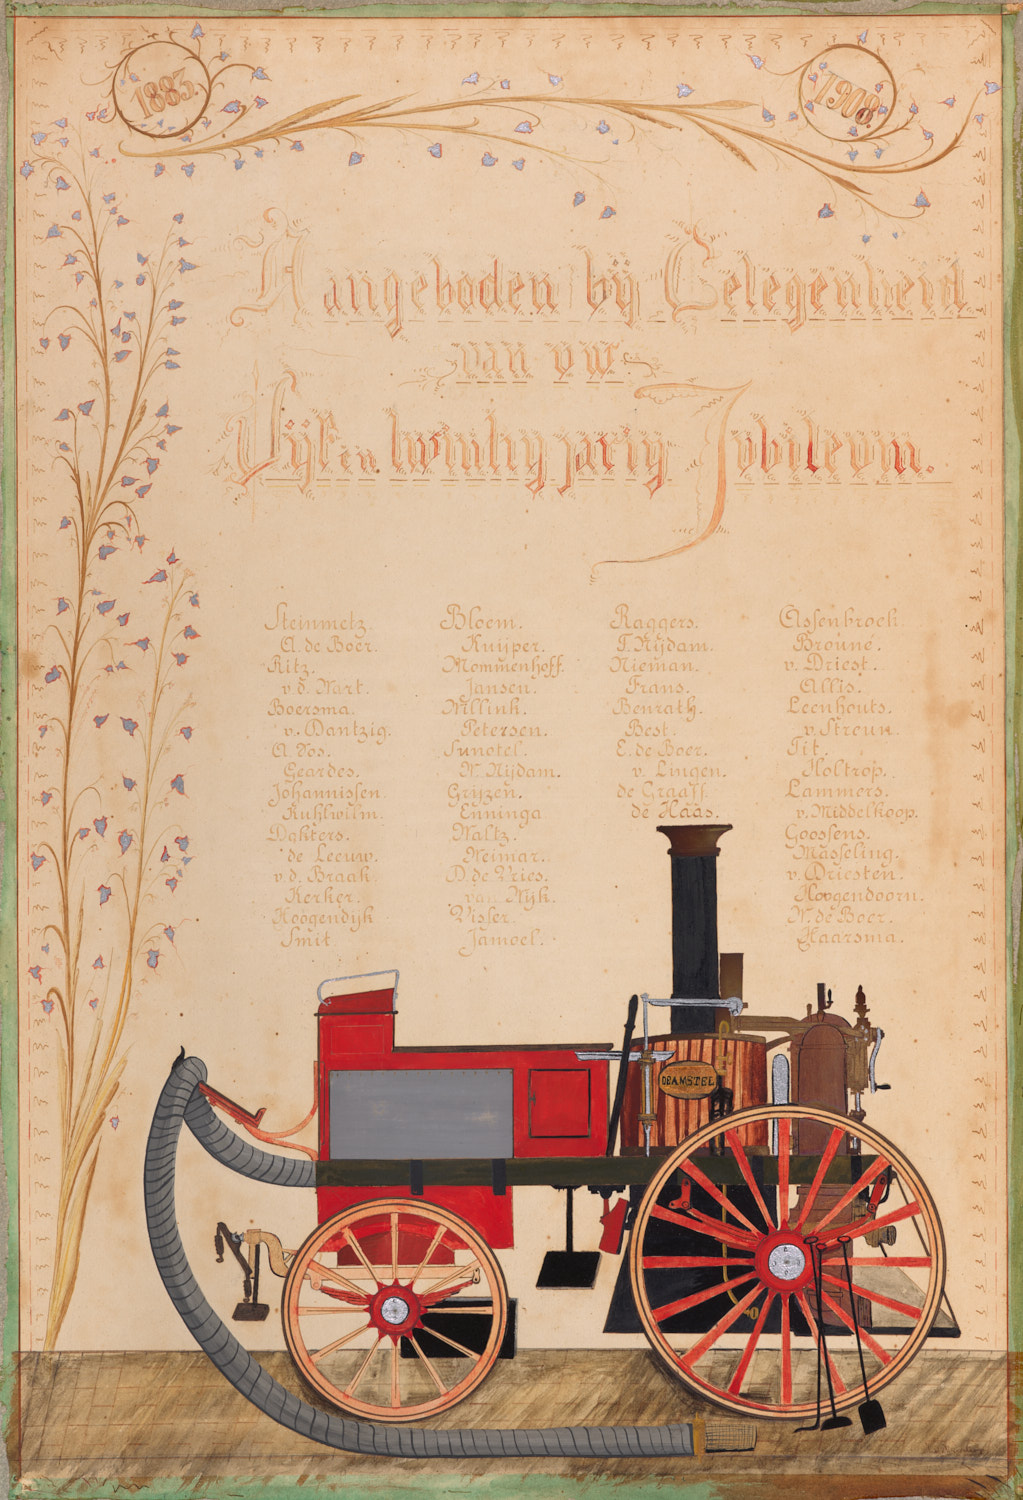 1883.
1908.
Aangeboden bij Gelegenheid
van uw
Vijf en twintig jarig Jubileum.
Steinmetz.
A. de Boer.
Ritz.
v.d. Wart.
Boersma.
v. Dantzig.
A. Vos.
Geardes.
Johannissen.
Kuhlwilm.
Dokters.
de Leeuw.
v.d. Braak.
Kerker.
Hoogendijk
Smit
Bloem.
Kuijper.
Mommenhoff.
Jansen.
Willink.
Petersen.
Sunotel.
W. Nijdam.
Grijzen.
Enninga
Waltz.
Weimar.
D. de Vries.
van Wijk.
Visser.
Jamoel.
Raggers.
T. Nijdam.
Nieman.
Frans.
Benrath.
Best.
E. de Boer.
v. Lingen.
de Graaff.
de Haas.
Assenbroek.
Broune.
v. Driest.
Allis.
Leenhouts.
v. Streun.
Tit.
Holtrop.
Lammers.
v. Middelkoop.
Goossens.
Masseling.
v. Driesten.
Hoogendoorn.
W. de Boer.
Haarsma.
DRAMSTEL